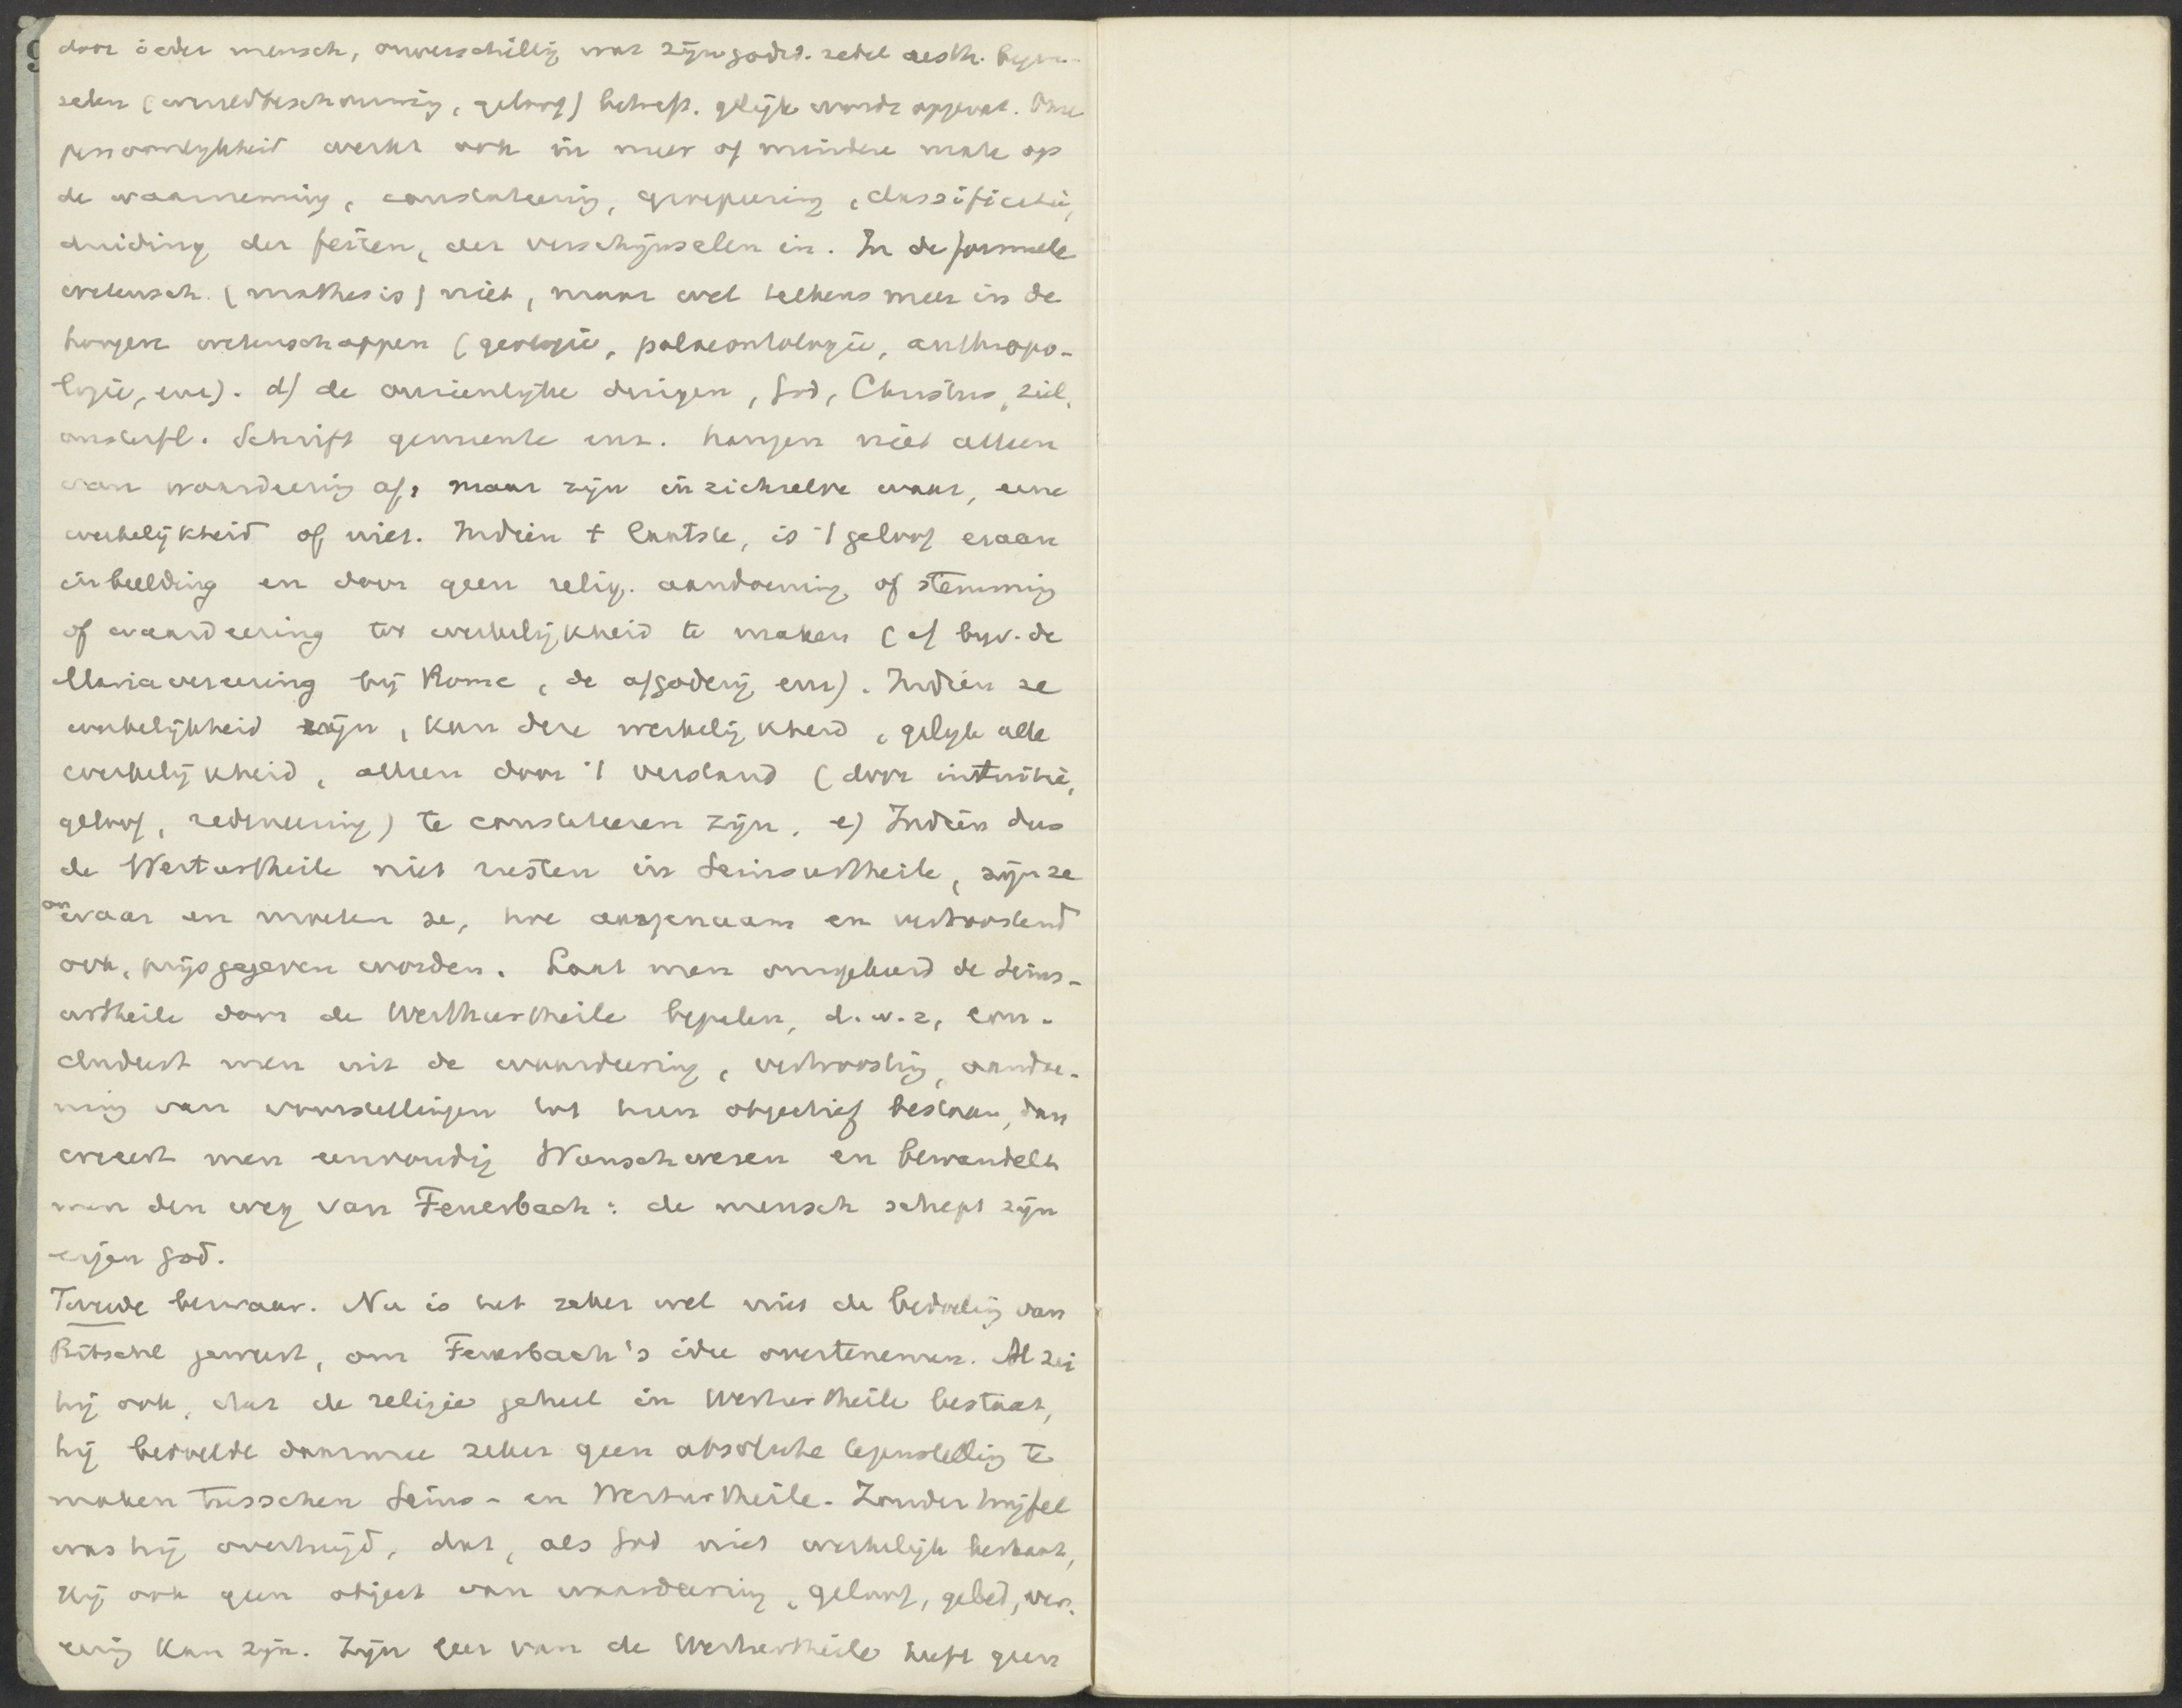 door ieder mensch, onverschillig wat zijn godsd. zedel aesth. begin-
selen (wereldbeschouwing, geloof) betreft. gelijk wordt opgevat. Onze
persoonlijkheid werkt ook in meer of mindere mate op
de waarneming, constateering, groepeering, classificatie,
duiding der feiten, der verschijnselen in. In de formeele
wetensch. (mathesis) niet, maar wel telkens meer in de
hoogere wetenschappen (geologie, palaeontologie, anthropo-
logie, enz). d) de onzienlijke dingen, God, Christus, ziel,
onsterfl. Schrift gemeente enz. hangen niet alleen
van waardeering af, maar zijn in zichzelve waar, eene
werkelijkheid of niet. Indien t laatste, is 't geloof eraan
inbeelding en door geen relig. aandoening of stemming
of waardeering tot werkelijkheid te maken (cf bijv. de
Mariavereering bij Rome, de afgoderij enz). Indien ze
werkelijkheid zijn, kan deze werkelijkheid, gelijk alle
werkelijkheid, alleen door 't verstand (door intuitie,
geloof, redeneering) te constateeren zijn. e) Indien dus
de Werturtheile niet rusten in Seinsurtheile, zijn ze
onwaar en moeten ze, hoe aangenaam en vertroostend
ook, prijsgegeven worden. Laat men omgekeerd de Seins-
urtheile door de Werthurtheile bepalen, d.w.z, con-
cludeert men uit de waardeering, vertroosting, aandoe-
ning van voorstellingen tot hun objectief bestaan, dan
creeert men eenvoudig Wunschwesen en bewandelt
men den weg van Feuerbach: de mensch schept zijn
eigen god.
Tweede bezwaar. Nu is het zeker wel niet de bedoeling van
Ritschl geweest, om Feuerbach's idee overtenemen. Al zei
hij ook, dat de religie geheel in Werthurtheile bestaat,
hij bedoelde daarmee zeker geen absolute tegenstelling te
maken tusschen Seins- en Werturtheile. Zonder twijfel
was hij overtuigd, dat, als God niet werkelijk bestaat,
Hij ook geen object van waardeering, geloof, gebed, ver-
eering kan zijn. Zijn leer van de Werthurtheile heeft geen